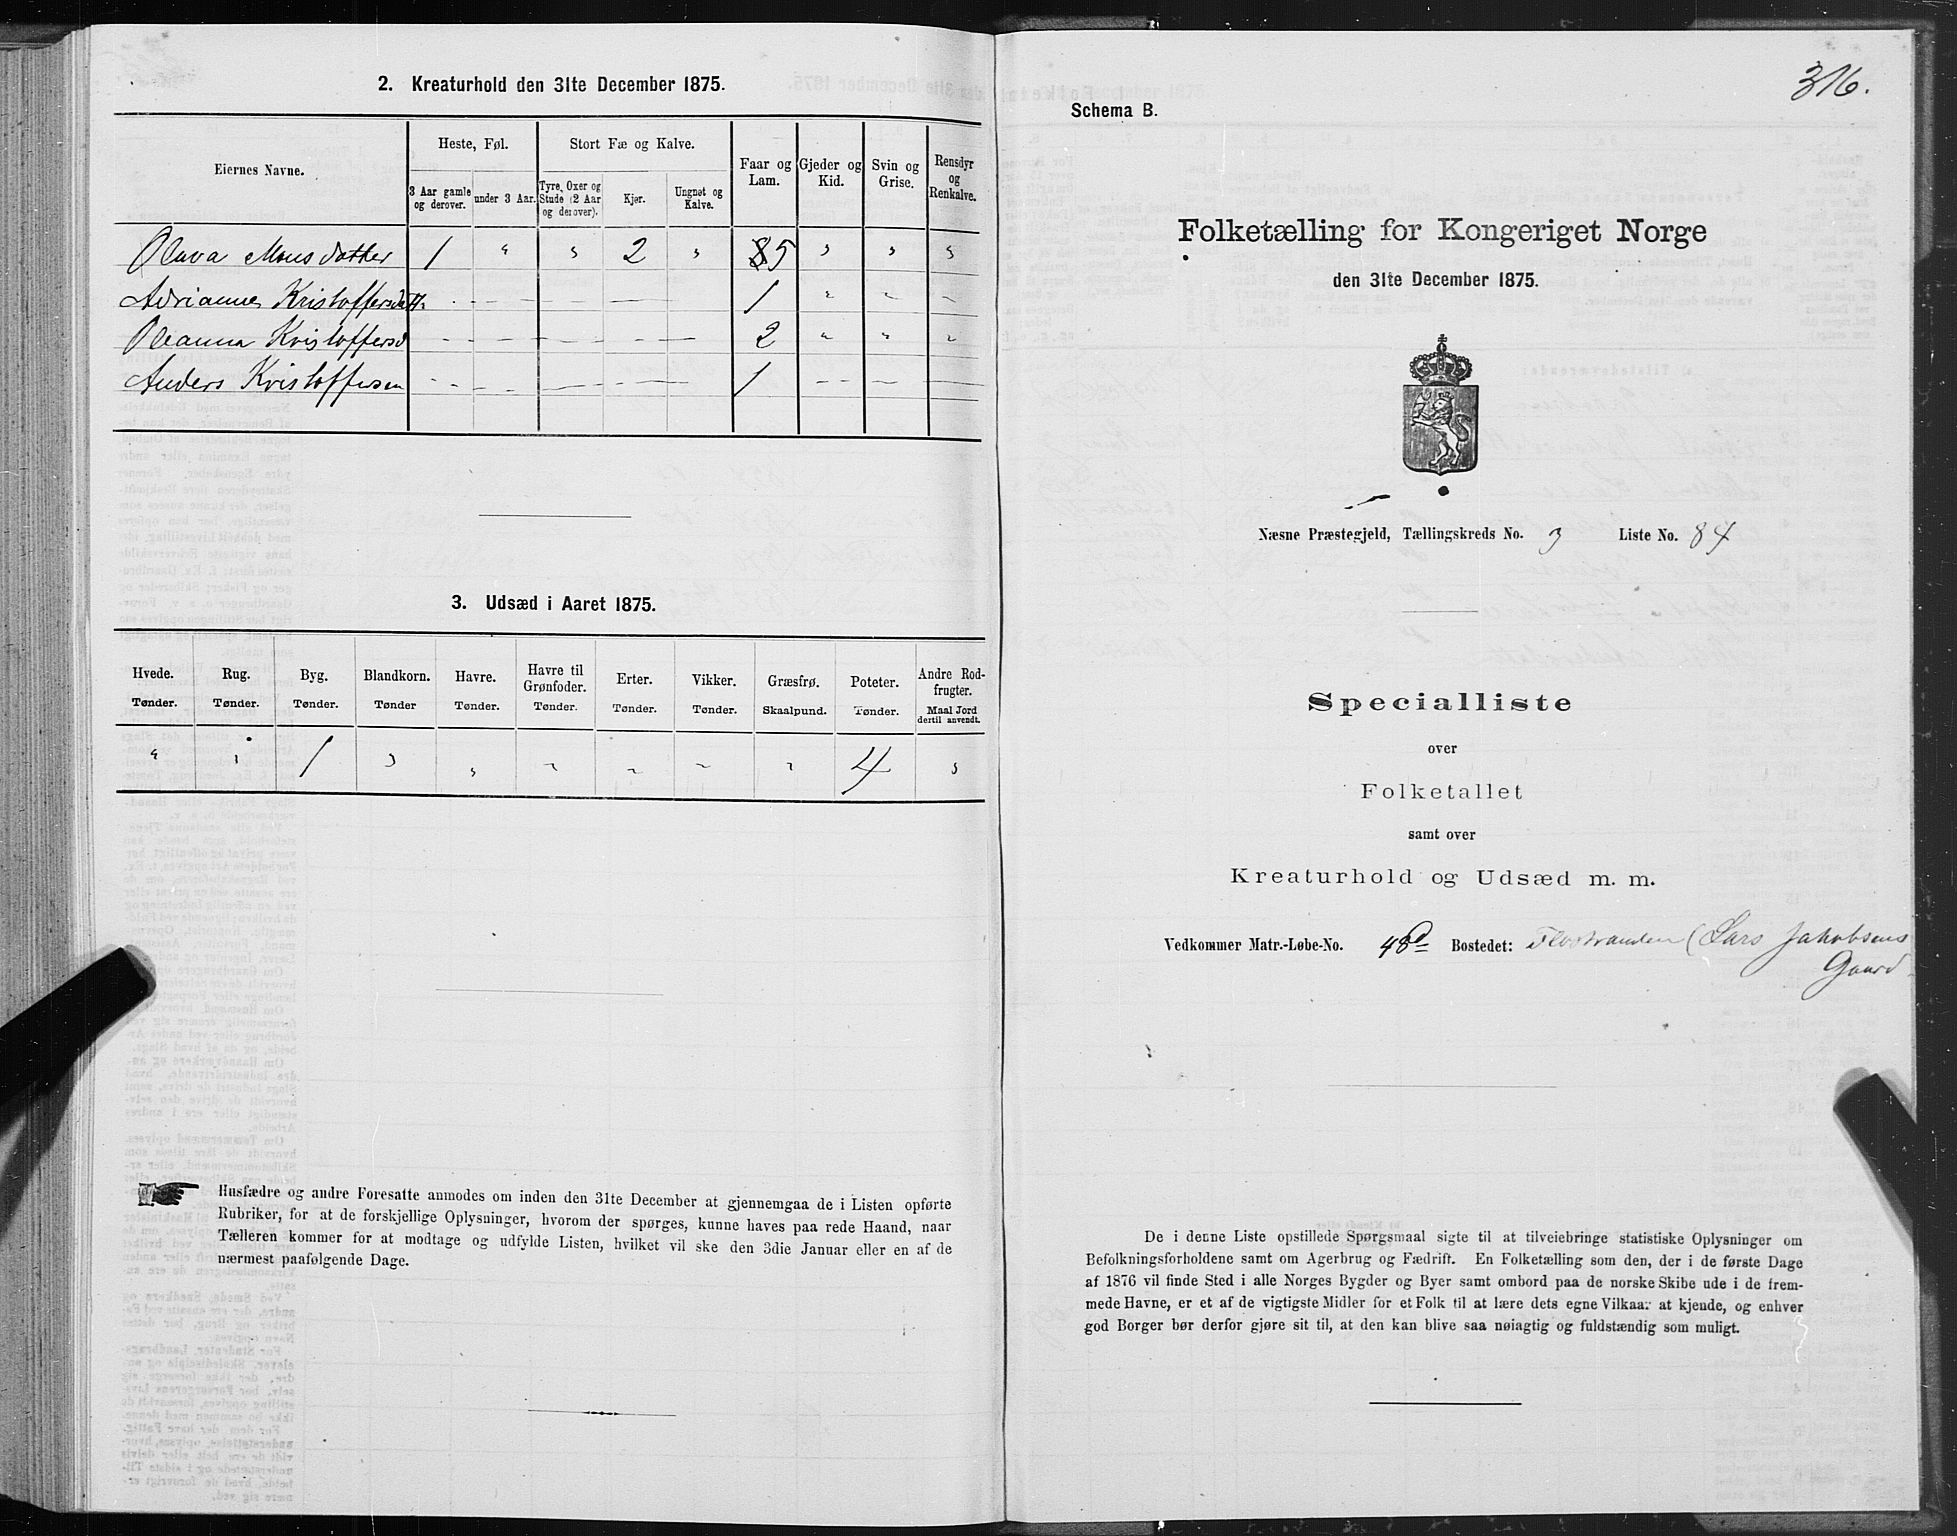 2. Kreaturhold den 31te December 1875.
Eiernes Navne.
Heste, Føl.
Stort Fæ og Kalve.
Faar og Lam.
Gjeder og Kid.
Svin og Grise.
Rensdyr og Renkalve.
3 Aar gamle og derover.
under 3 Aar.
Tyre, Oxer og Stude (2 Aar og derover).
Kjør.
Ungnøt og Kalve.
Olava Monsdatter 1 " " 2 " 5 " " "
Adrianne Kristoffersdatt. 1 " " "
Oleanna Kristoffersd 2 " " "
Anders Kristoffersen 1
3. Udsæd i Aaret 1875.
Hvede. Rug. Byg. Blandkorn. Havre. Havre til Grønfoder. Erter. Vikker. Græsfrø. Poteter. Andre Rodfrugter.
Tønder. Tønder. Tønder. Tønder Tønder. Tønder. Tønder. Tønder. Skaalpund. Tønder. Maal Jord dertil anvendt.
" " 1 " " " " " " 4 "
Husfædre og andre Foresatte anmodes om inden den 31te December at gjennemgaa de i Listen opførte
Rubriker, for at de forskjellige Oplysninger, hvorom der spørges, kunne haves paa rede Haand, naar
Tælleren kommer for at modtage og udfylde Listen, hvilket vil ske den 3die Januar eller en af de
nærmest paafølgende Dage.
316.
Schema B.
Folketælling for Kongeriget Norge
den 31te December 1875.
Næsne Præstegjeld, Tællingskreds No. 3 Liste No. 84
Specialliste
over
Folketallet
samt over
Kreaturhold og Udsæd m. m.
Vedkommer Matr.-Løbe-No. 48d Bostedet: Flostranden (Lars Jakobsens
Gaard
De i denne Liste opstillede Spørgsmaal sigte til at tilveiebringe statistiske Oplysninger om
Befolkningsforholdene samt om Agerbrug og Fædrift. En Folketælling som den, der i de første Dage
af 1876 vil finde Sted i alle Norges Bygder og Byer samt ombord paa de norske Skibe ude i de frem-
mede Havne, er et af de vigtigste Midler for et Folk til at lære dets egne Vilkaar at kjende, og enhver
god Borger bør derfor gjøre sit til, at den kan blive saa nøiagtig og fuldstændig som muligt.